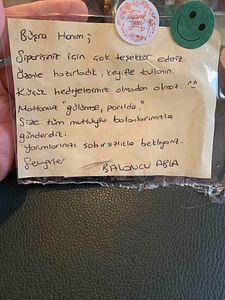 Büşra Hanım;
Siparişiniz için çok teşekkür ederiz.
Özenle hazırladık, keyifle kullanın.
Küçük hediyelerimiz olmadan olmaz. ^^
Mottomuz "gülümse, parılda."
Size tüm mutluluğu balonlarımızla
gönderdik.
Yorumlarınızı sabırsızlıkla bekliyoruz.
Sevgiler
BALONCU ABLA
Thank
you